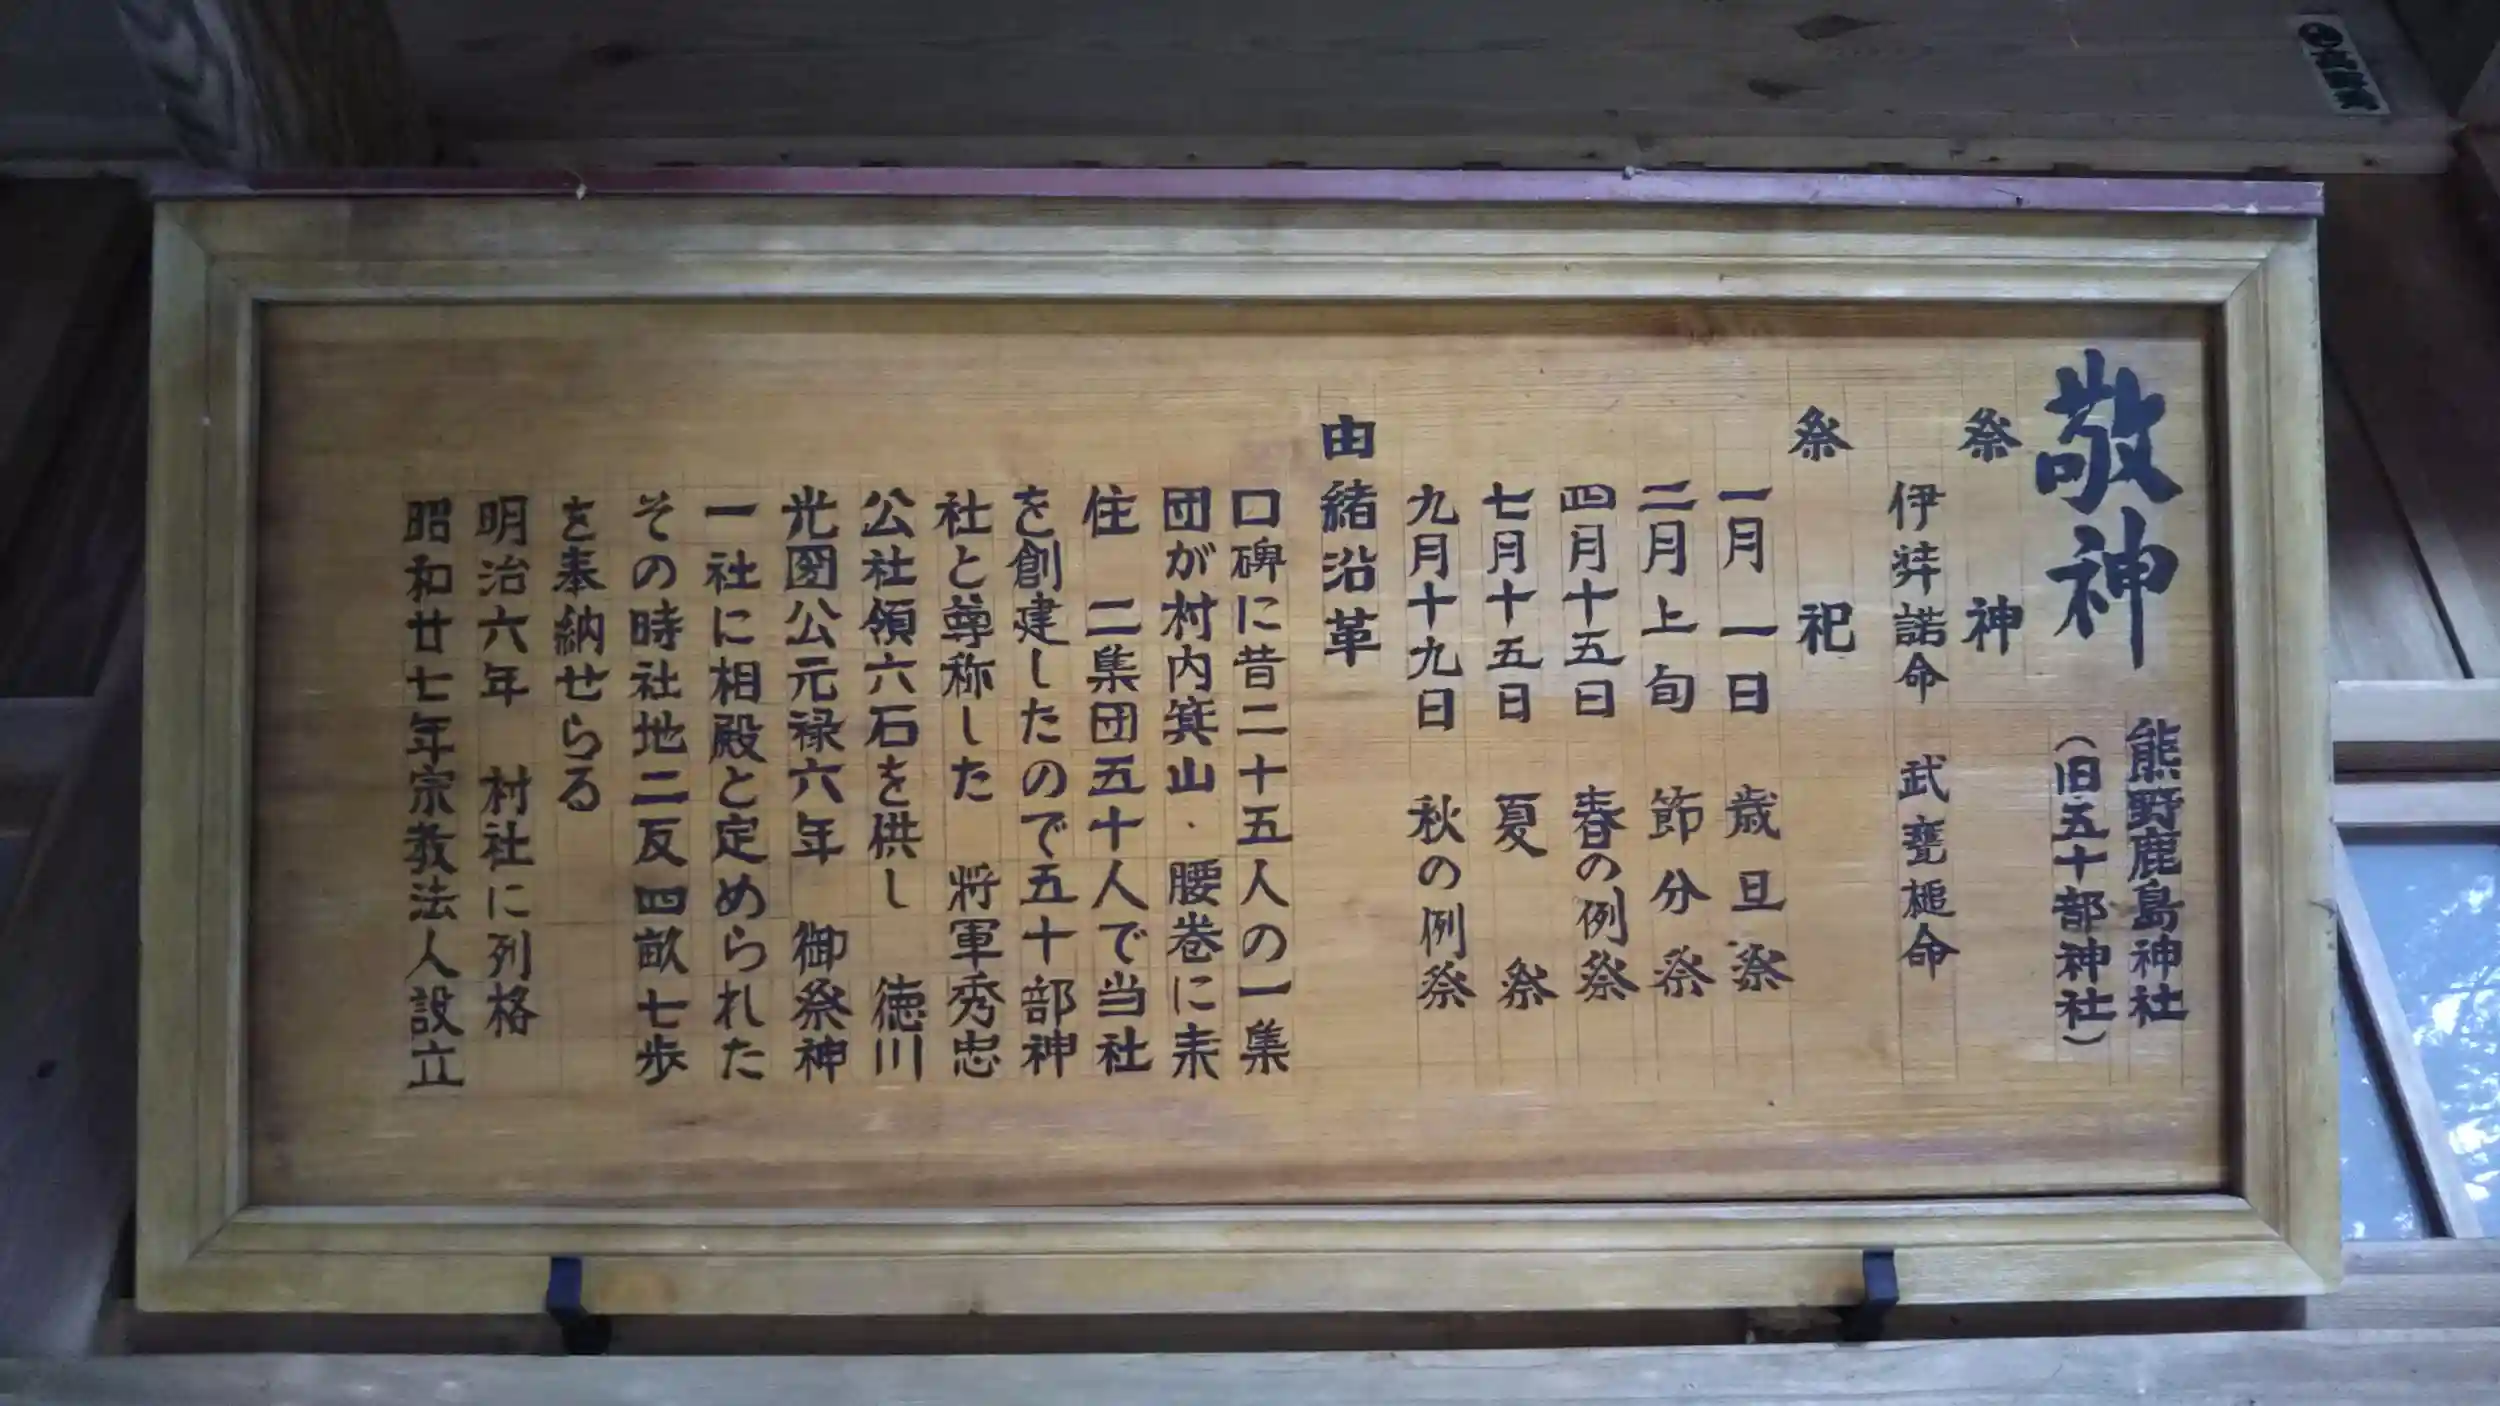 敬神
熊野鹿島神社
（旧五十部神社）
祭神
伊弉諾命　武甕槌命
祭祀
一月一日　歳旦祭
二月上旬　節分祭
四月十五日　春の例祭
七月十五日　夏祭
九月十九日　秋の例祭
由緒沿革
口碑に昔二十五人の一集
団が村内箕山・腰巻に来
住　二集団五十人で当社
を創建したので五十部神
社と尊称した　将軍秀忠
公社領六石を供し　徳川
光圀公元禄六年　御祭神
一社に相殿と定められた
その時社地二反四畝七歩
を奉納せらる
明治六年　村社に列格
昭和廿七年宗教法人設立